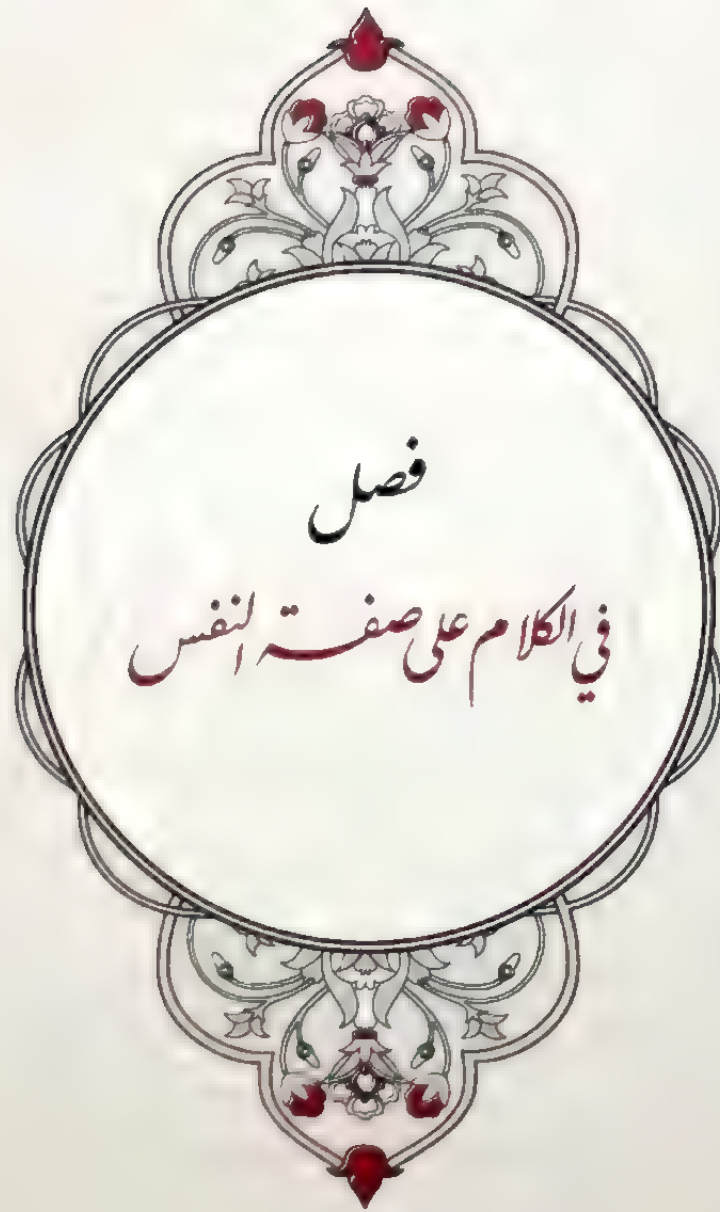 فصل
في الكلام على صفة النفس